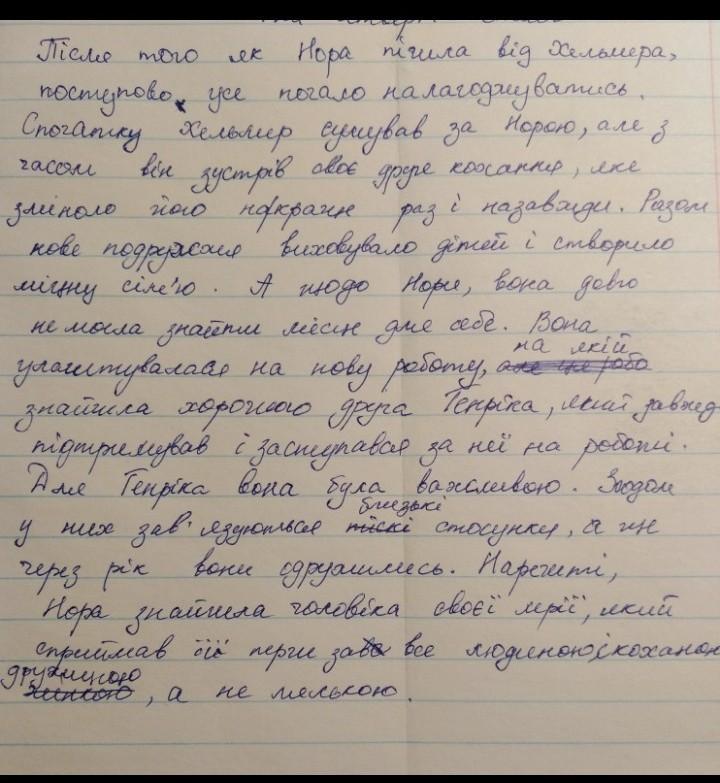 Після того як Нора пішла від Хельмера,
поступово, усе почало налагоджуватись.
Спочатку Хельмер сумував за Норою, але з
часом він зустрів своє друге кохання, яке
змінило його на краще раз і назавжди. Разом
нове подружжя виховувало дітей і створило
міцну сім'ю. А щодо Нори, вона довго
не могла знайти місця для себе. Вона
улаштувалася на нову роботу, на якій
знайшла хорошого друга Генріка, який завжд
підтримував і заступався за неї на роботі.
Для Генріка вона була важливою. Згодом
у них зав'язуються близькі стосунки, а
через рік вони одружились. Нарешті,
Нора знайшла чоловіка своєї мрії, який
сприймав її перш за все людиною і коханою
дружиною, а не лялькою.